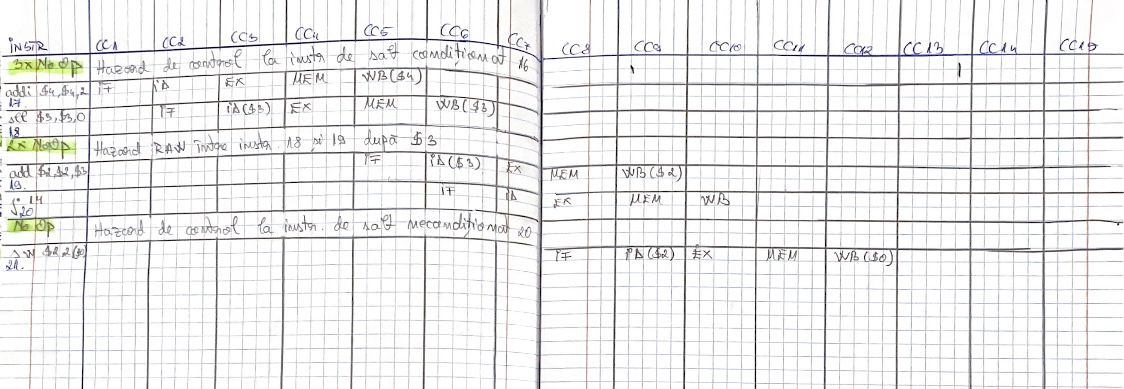 INSTR CC1 CC2 CC3 CC4 CC5 CC6 CC7 CC8 CC9 CC10 CC11 CC12 CC13 CC14 CC15
3x NoOp Hazard de control la instr de salt conditionat 16
addi $4,$4,2 IF ID EX MEM WB($4)
17.
sll $3,$3,0 IF ID($3) EX MEM WB($3)
18
2x NoOp Hazard RAW între instr. 18 și 19 după $3
add $2,$2,$3 IF ID($3) EX MEM WB($2)
19.
j 14 IF ID EX MEM WB
20
NoOp Hazard de control la instr. de salt neconditionat 20
IF ID($2) EX MEM WB($0)
21.